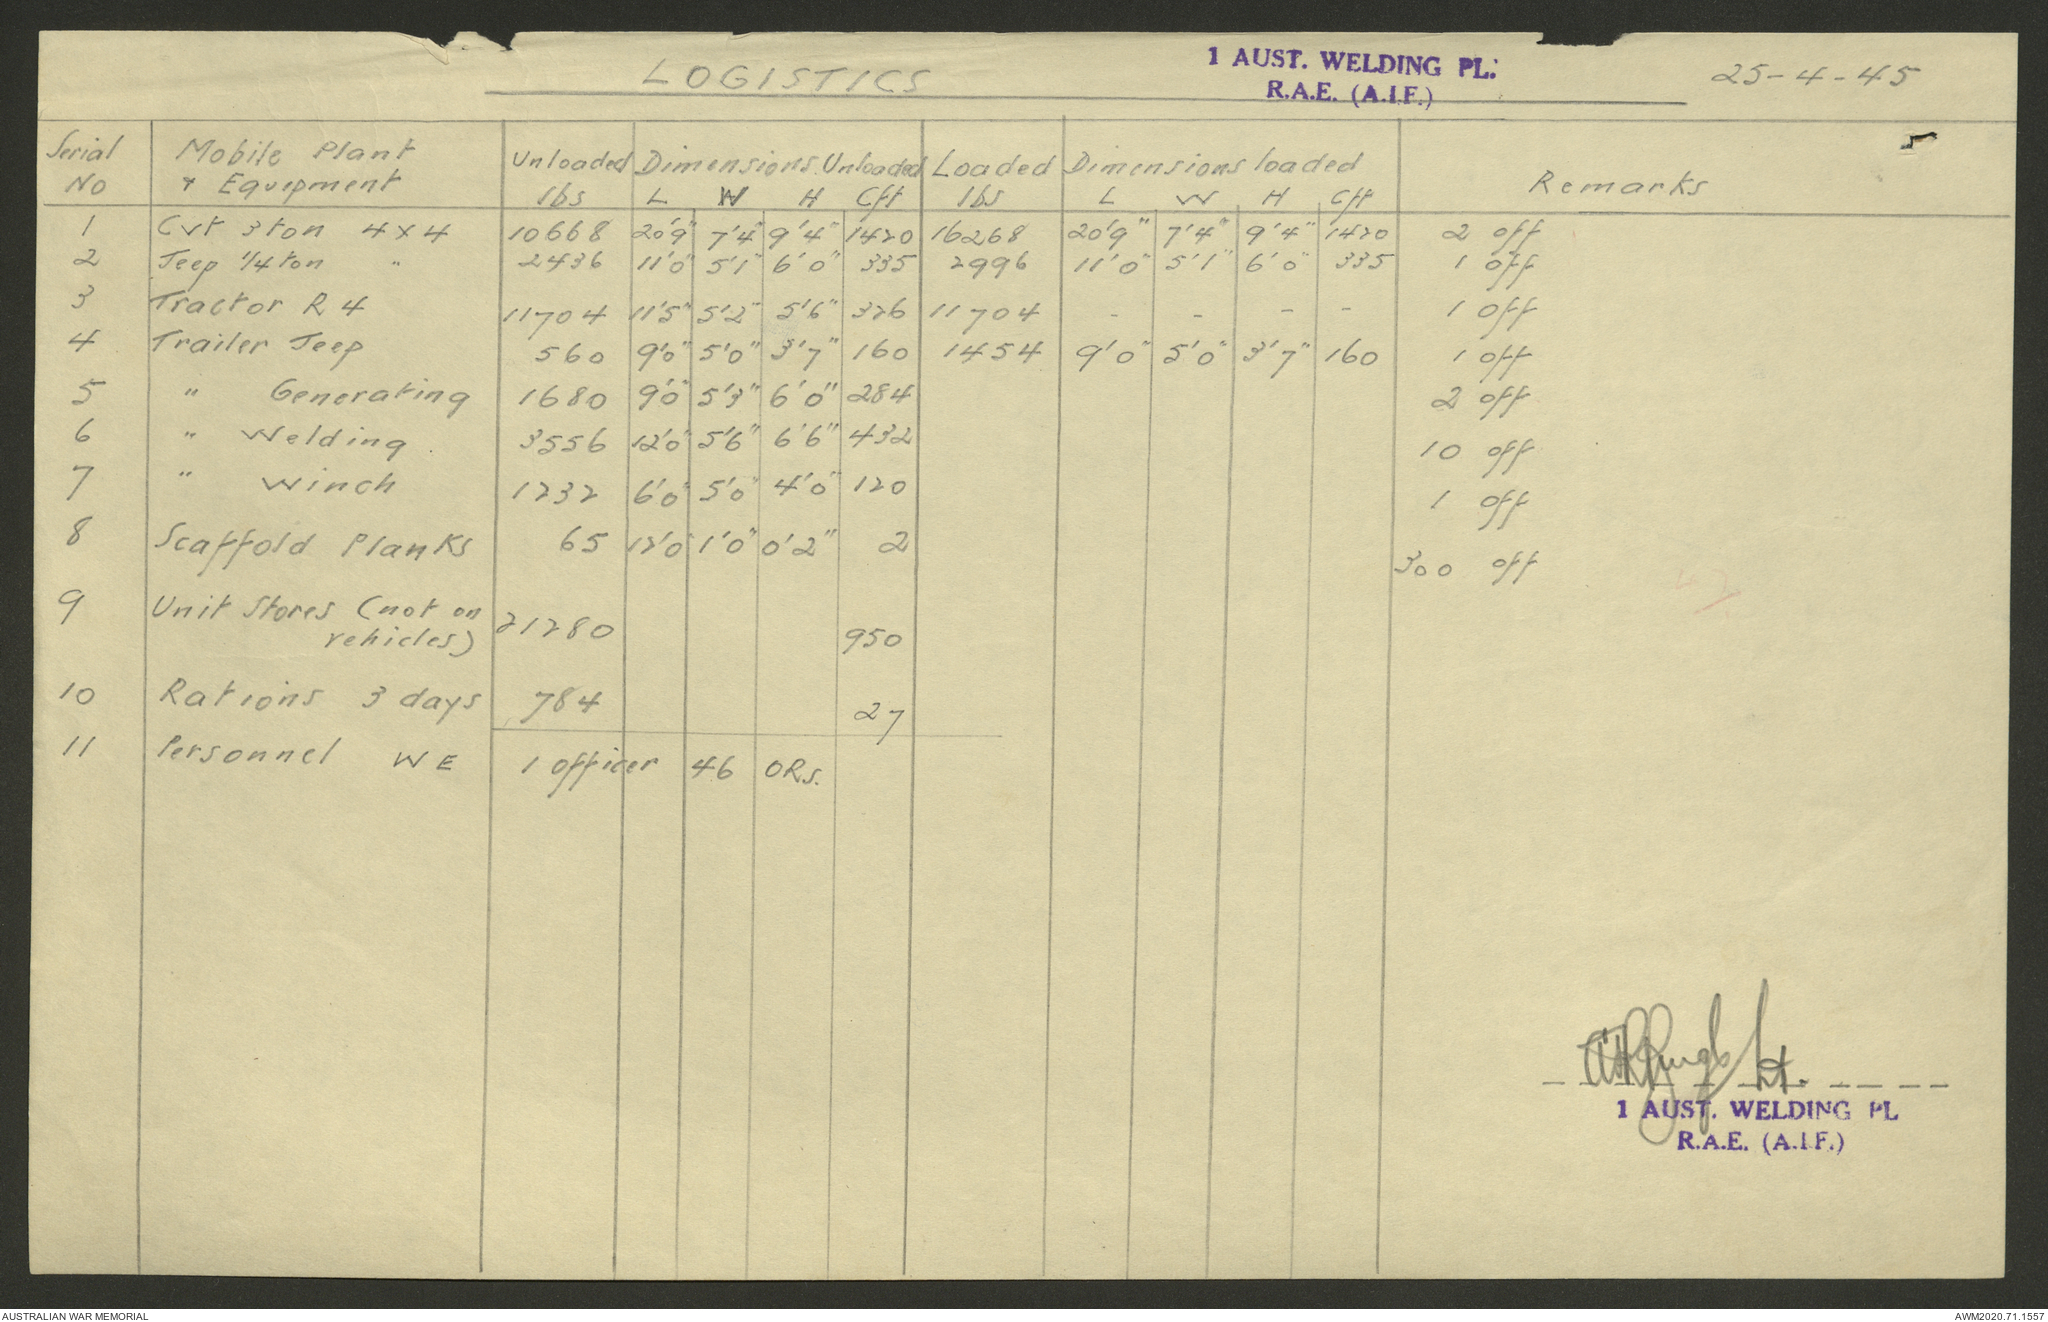 LOGISTICS
1 AUST. WELDING PL.
R.A.E. (A.I.F.)
25-4-45
Serial No Mobile Plant + Equipment Unloaded lbs Dimensions Unloaded L W H Cft Loaded lbs Dimensions loaded L W H Cft Remarks
1 Cvt 3 ton 4 x 4 10668 20'9" 7'4" 9'4" 1420 16268 20'9" 7'4" 9'4" 1420 2 off
2 Jeep 1/4 ton " 2436 11'0" 5'1" 6'0" 335 2996 11'0" 5'1" 6'0" 335 1 off
3 Tractor R4 11704 11'5" 5'2" 5'6" 326 11704 - - - - 1 off
4 Trailer Jeep 560 9'0" 5'0" 3'7" 160 1454 9'0" 5'0" 3'7" 160 1 off
5 " Generating 1680 9'0" 5'3" 6'0" 284 2 off
6 " Welding 3556 12'0" 5'6" 6'6" 432 10 off
7 " Winch 1232 6'0" 5'0" 4'0" 120 1 off
8 Scaffold Planks 65 12'0" 1'0" 0'2" 2 300 off
9 Unit Stores (not on
vehicles) 21280 950
10 Rations 3 days 784 27
11 Personnel WE 1 officer 46 ORs.
Lt.
1 AUST. WELDING PL
R.A.E. (A.I.F.)
AUSTRALIAN WAR MEMORIAL
AWM2020.71.1557